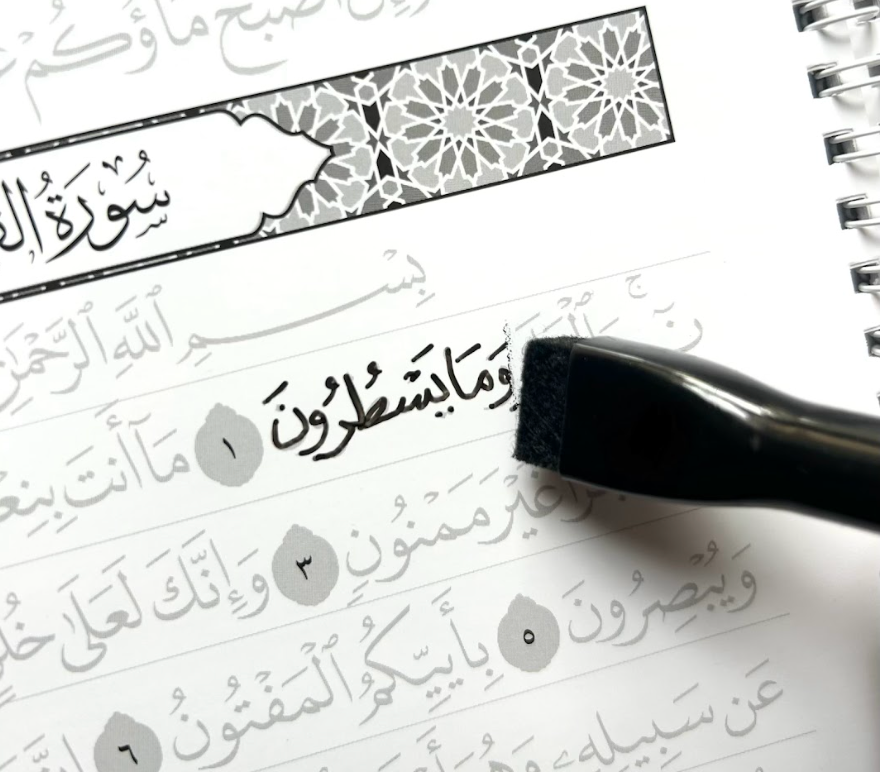 أَصْبَحَ مَاؤُكُمْ
سُورَةُ
بِسْمِ ٱللَّهِ ٱلرَّحْمَٰنِ
نٓ ۚ وَمَا يَسْطُرُونَ ١ مَآ أَنتَ
غَيْرَ مَمْنُونٍ ٣ وَإِنَّكَ لَعَلَىٰ
وَيُبْصِرُونَ ٥ بِأَييِّكُمُ ٱلْمَفْتُونُ ٦
عَن سَبِيلِهِۦ وَهُوَ